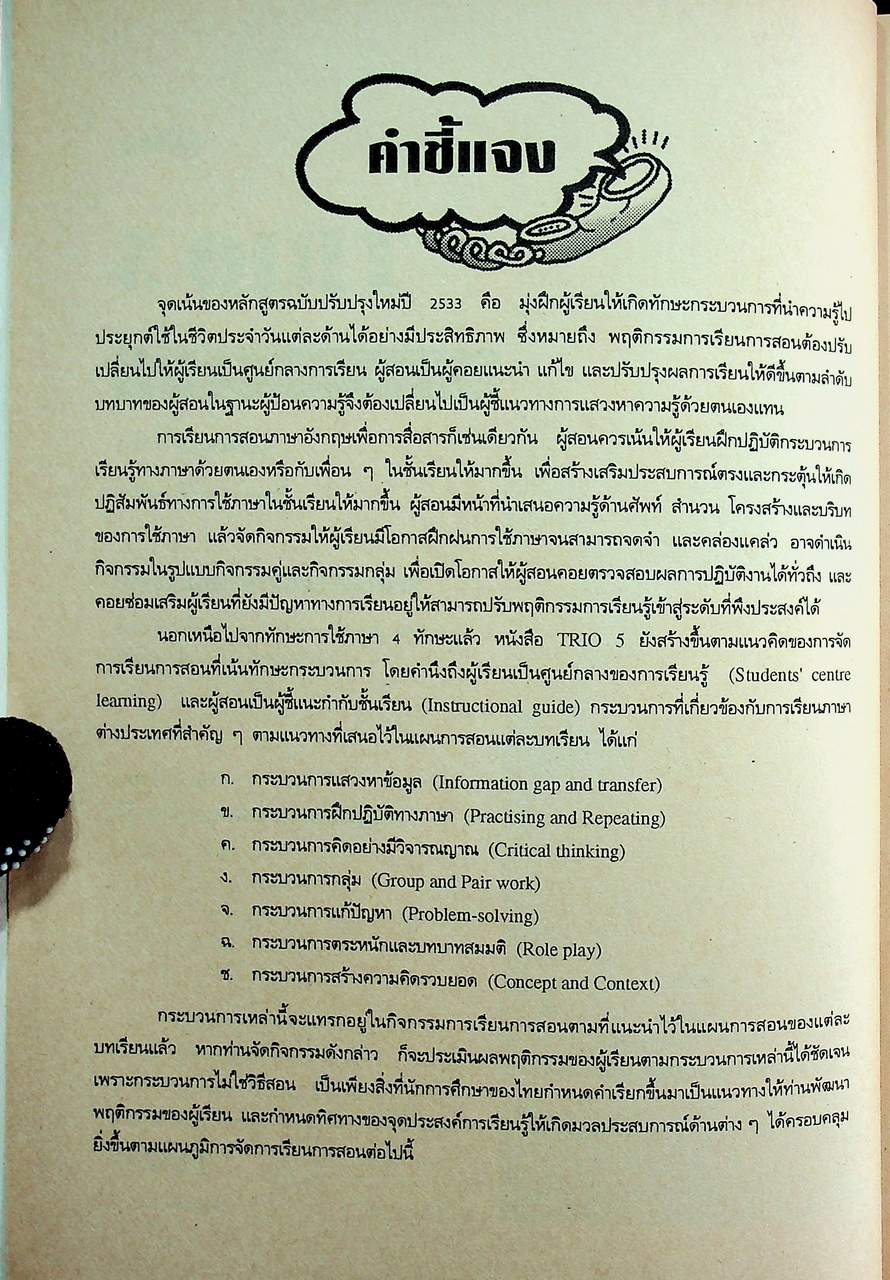 คำชี้แจง
จุดเน้นของหลักสูตรฉบับปรับปรุงใหม่ปี 2533 คือ มุ่งฝึกผู้เรียนให้เกิดทักษะกระบวนการที่นำความรู้ไป
ประยุกต์ใช้ในชีวิตประจำวันแต่ละด้านได้อย่างมีประสิทธิภาพ ซึ่งหมายถึง พฤติกรรมการเรียนการสอนต้องปรับ
เปลี่ยนไปให้ผู้เรียนเป็นศูนย์กลางการเรียน ผู้สอนเป็นผู้คอยแนะนำ แก้ไข และปรับปรุงผลการเรียนให้ดีขึ้นตามลำดับ
บทบาทของผู้สอนในฐานะผู้ป้อนความรู้จึงต้องเปลี่ยนไปเป็นผู้ชี้แนวทางการแสวงหาความรู้ด้วยตนเองแทน
การเรียนการสอนภาษาอังกฤษเพื่อการสื่อสารก็เช่นเดียวกัน ผู้สอนควรเน้นให้ผู้เรียนฝึกปฏิบัติกระบวนการ
เรียนรู้ทางภาษาด้วยตนเองหรือกับเพื่อน ๆ ในชั้นเรียนให้มากขึ้น เพื่อสร้างเสริมประสบการณ์ตรงและกระตุ้นให้เกิด
ปฏิสัมพันธ์ทางการใช้ภาษาในชั้นเรียนให้มากขึ้น ผู้สอนมีหน้าที่นำเสนอความรู้ด้านศัพท์ สำนวน โครงสร้างและบริบท
ของการใช้ภาษา แล้วจัดกิจกรรมให้ผู้เรียนมีโอกาสฝึกฝนการใช้ภาษาจนสามารถจดจำ และคล่องแคล่ว อาจดำเนิน
กิจกรรมในรูปแบบกิจกรรมคู่และกิจกรรมกลุ่ม เพื่อเปิดโอกาสให้ผู้สอนคอยตรวจสอบผลการปฏิบัติงานได้ทั่วถึง และ
คอยซ่อมเสริมผู้เรียนที่ยังมีปัญหาทางการเรียนอยู่ให้สามารถปรับพฤติกรรมการเรียนรู้เข้าสู่ระดับที่พึงประสงค์ได้
นอกเหนือไปจากทักษะการใช้ภาษา 4 ทักษะแล้ว หนังสือ TRIO 5 ยังสร้างขึ้นตามแนวคิดของการจัด
การเรียนการสอนที่เน้นทักษะกระบวนการ โดยคำนึงถึงผู้เรียนเป็นศูนย์กลางของการเรียนรู้ (Students' centre
learning) และผู้สอนเป็นผู้ชี้แนะกำกับชั้นเรียน (Instructional guide) กระบวนการที่เกี่ยวข้องกับการเรียนภาษา
ต่างประเทศที่สำคัญ ๆ ตามแนวทางที่เสนอไว้ในแผนการสอนแต่ละบทเรียน ได้แก่
ก. กระบวนการแสวงหาข้อมูล (Information gap and transfer)
ข. กระบวนการฝึกปฏิบัติทางภาษา (Practising and Repeating)
ค. กระบวนการคิดอย่างมีวิจารณญาณ (Critical thinking)
ง. กระบวนการกลุ่ม (Group and Pair work)
จ. กระบวนการแก้ปัญหา (Problem-solving)
ฉ. กระบวนการตระหนักและบทบาทสมมติ (Role play)
ช. กระบวนการสร้างความคิดรวบยอด (Concept and Context)
กระบวนการเหล่านี้จะแทรกอยู่ในกิจกรรมการเรียนการสอนตามที่แนะนำไว้ในแผนการสอนของแต่ละ
บทเรียนแล้ว หากท่านจัดกิจกรรมดังกล่าว ก็จะประเมินผลพฤติกรรมของผู้เรียนตามกระบวนการเหล่านี้ได้ชัดเจน
เพราะกระบวนการไม่ใช่วิธีสอน เป็นเพียงสิ่งที่นักการศึกษาของไทยกำหนดคำเรียกขึ้นมาเป็นแนวทางให้ท่านพัฒนา
พฤติกรรมของผู้เรียน และกำหนดทิศทางของจุดประสงค์การเรียนรู้ให้เกิดมวลประสบการณ์ด้านต่าง ๆ ได้ครอบคลุม
ยิ่งขึ้นตามแผนภูมิการจัดการเรียนการสอนต่อไปนี้